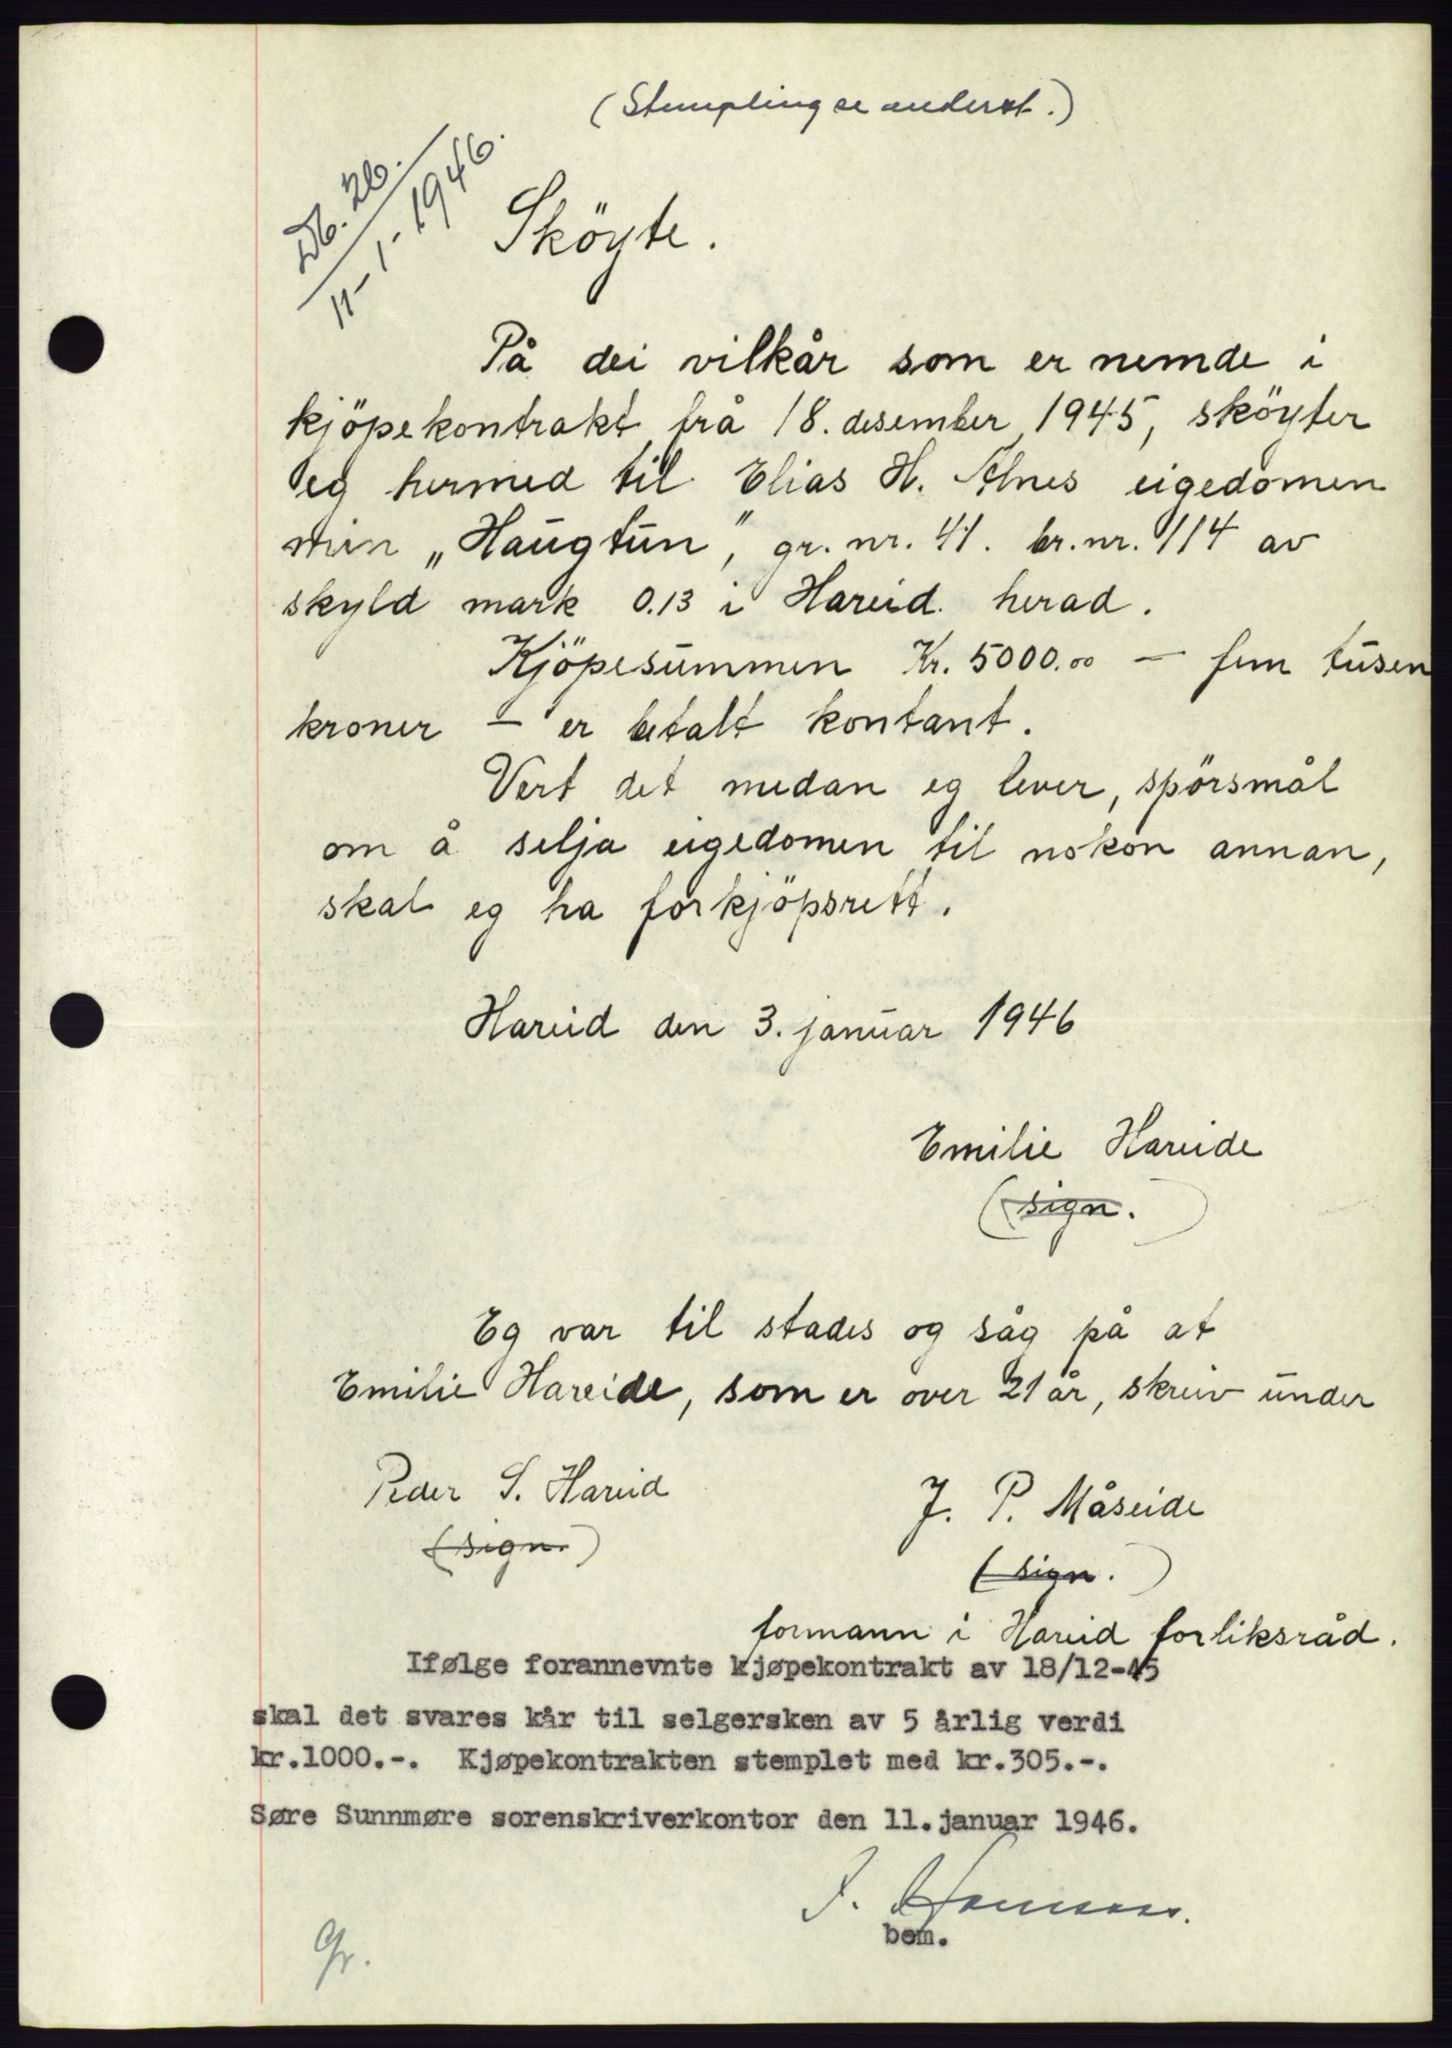 (Stempling se nederst.)
Db. 26.
11-1-1946.
Sköyte.
På dei vilkår som er nemde i
kjöpekontrakt frå 18. desember 1945, sköyter
eg hermed til Elias H. Alnes eigedomen
min „Haugtun", gr. nr. 41. br. nr. 114 av
skyld mark 0.13 i Hareid herad.
Kjöpesummen Kr. 5000.00 — fem tusen
kroner — er betalt kontant.
Vert det medan eg lever, spörsmål
om å selja eigedomen til nokon annan,
skal eg ha forkjöpsrett.
Hareid den 3. januar 1946
Emilie Hareide
(sign.)
Eg var til stades og såg på at
Emilie Hareide, som er over 21 år, skreiv under
Peder S. Hareid J. P. Måseide
(sign.) (sign.)
formann i Hareid forliksråd.
Ifølge forannevnte kjøpekontrakt av 18/12-45
skal det svares kår til selgersken av 5 årlig verdi
kr.1000.-. Kjøpekontrakten stemplet med kr.305.-.
Søre Sunnmøre sorenskriverkontor den 11.januar 1946.
bem.
Gr.